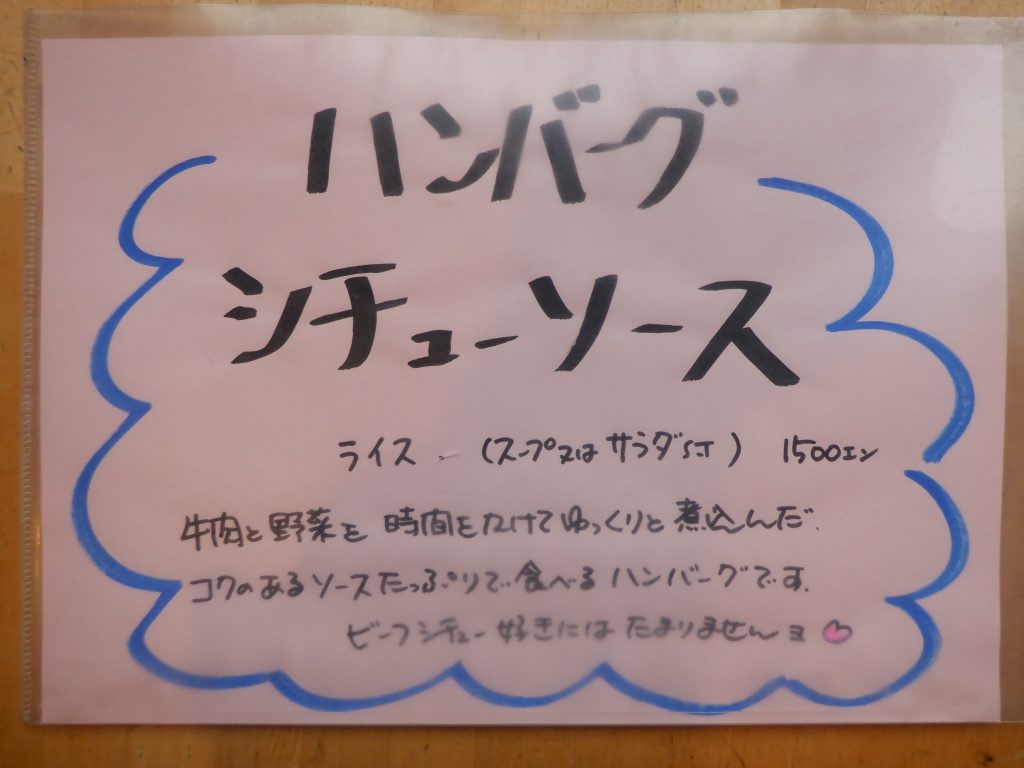 ハンバーグ
シチューソース
ライス (スープ又はサラダ付) 1500エン
牛肉と野菜を 時間をかけてゆっくりと煮込んだ.
コクのあるソースたっぷりで食べるハンバーグです.
ビーフシチュー好きにはたまりませんヨ